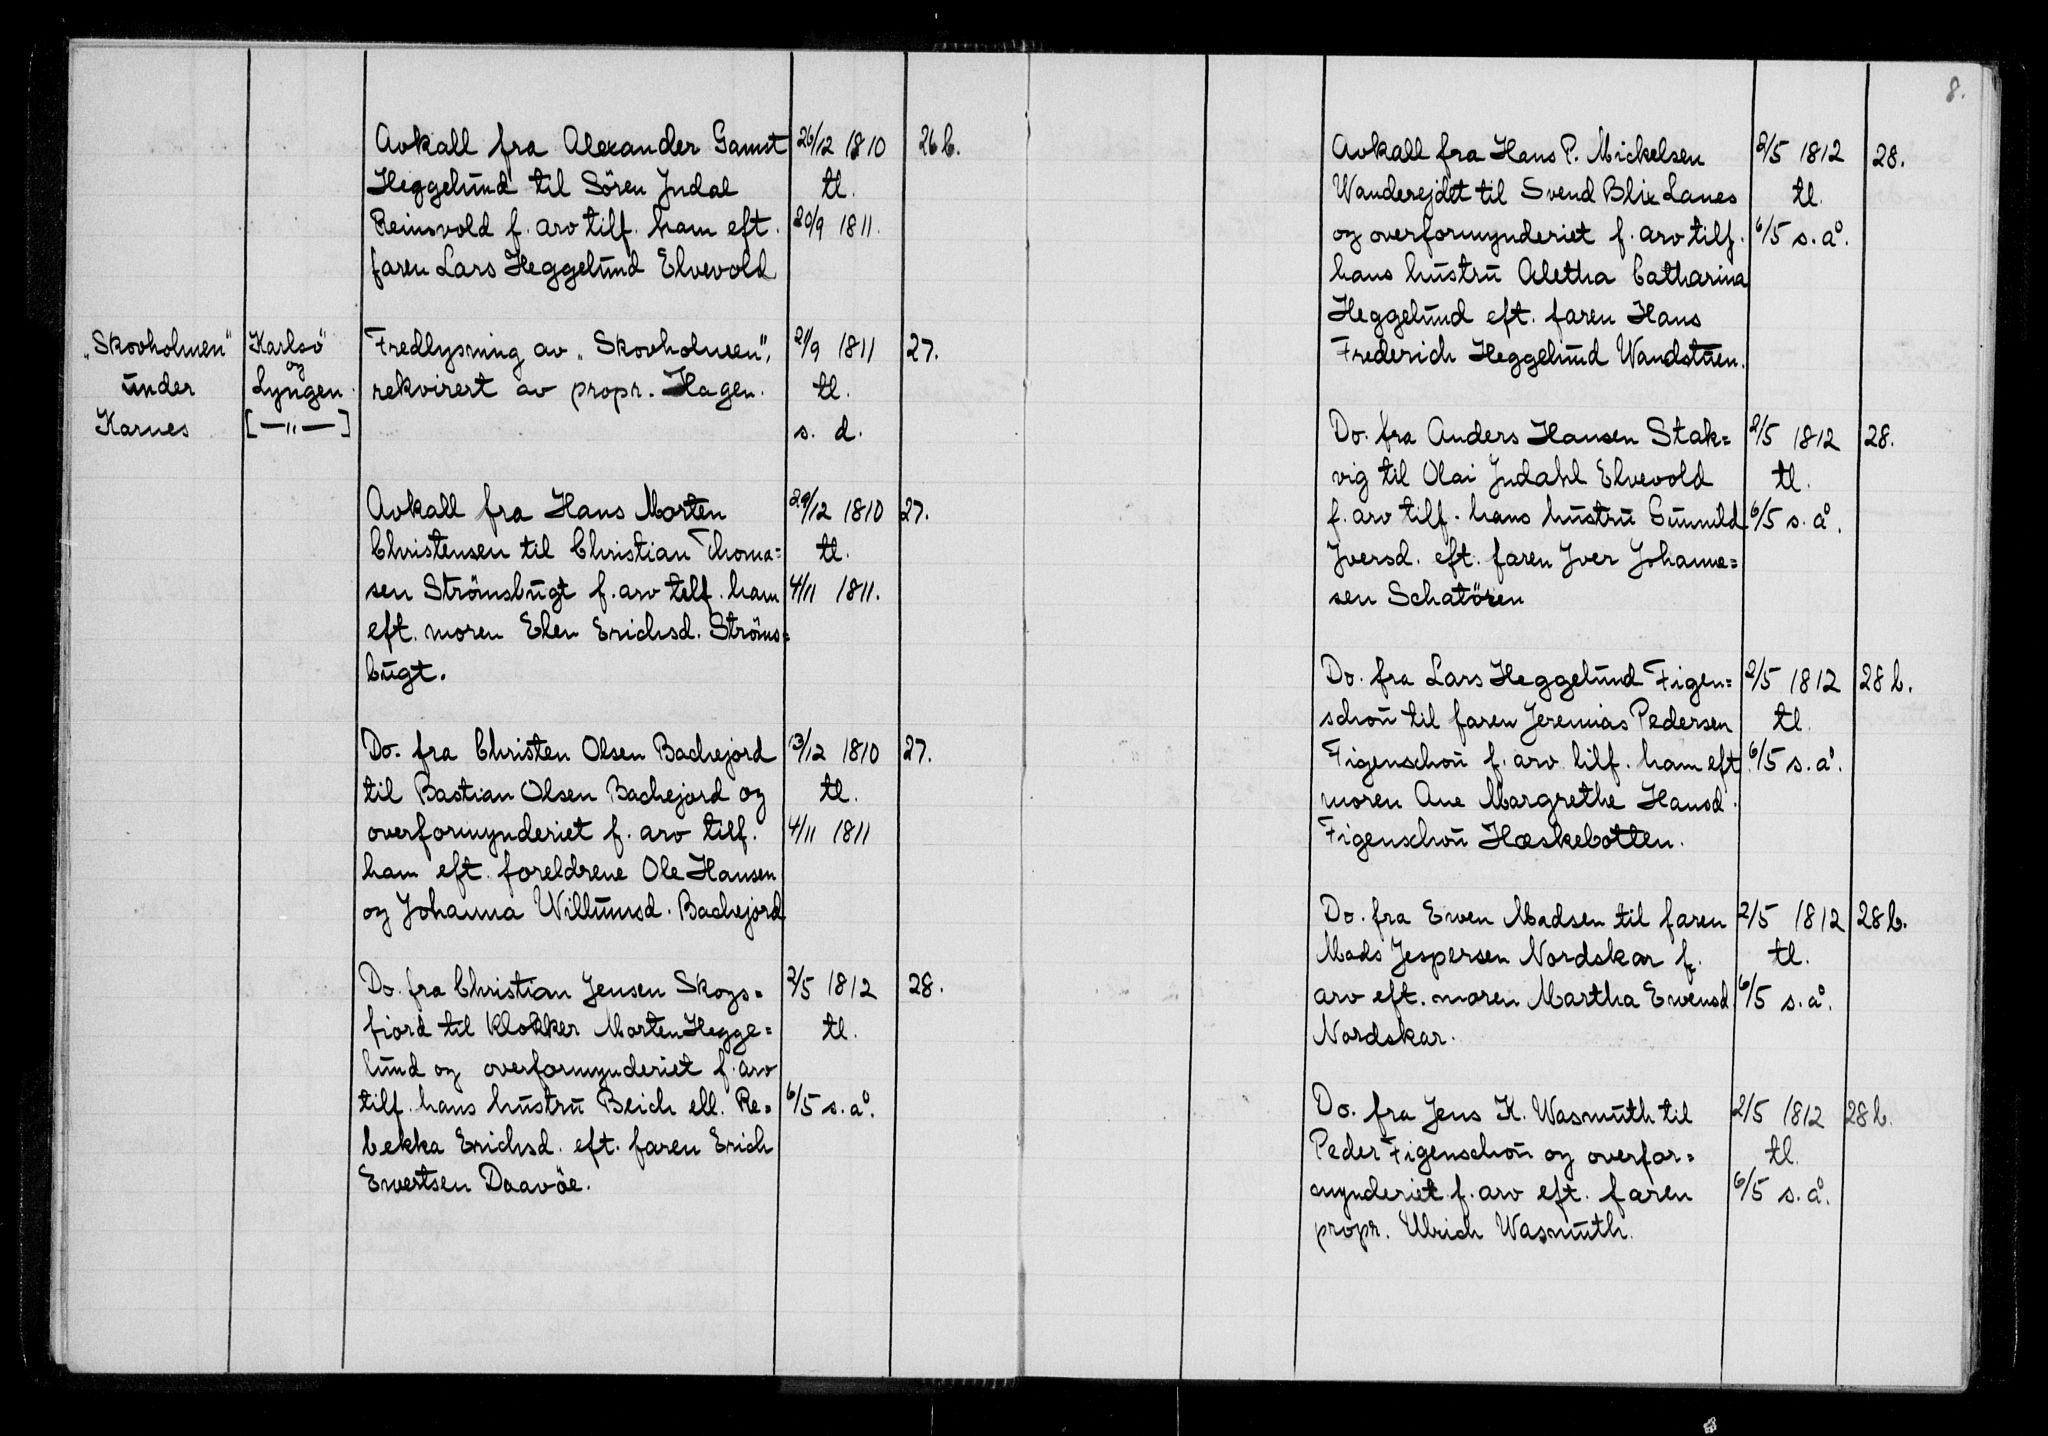 8.
Avkall fra Alexander Gamst 26/12 1810 26 b.
Heggelund til Sören Jndal tl.
Reinsvold f. arv tilf. ham eft. 20/9 1811.
faren Lars Heggelund Elvevold
"Skovholmen" Karlsö Fredlysning av "Skovholmen", 21/9 1811 27.
under og
Lyngen. rekvirert av propr. Hagen. tl.
Karnes [—"—] s. d.
Avkall fra Hans Morten 29/12 1810 27.
Christensen til Christian Thoma= tl.
sen Strömsbugt f. arv tilf. ham 4/11 1811.
eft. moren Elen Erichsd. Ströms=
bugt.
Do. fra Christen Olsen Bachejord 13/12 1810 27.
til Bastian Olsen Bachejord og tl.
overformynderiet f. arv tilf. 4/11 1811
ham eft. foreldrene Ole Hansen
og Johanna Willumsd. Bachejord
Do. fra Christian Jensen Skogs= 2/5 1812 28.
fjord til klokker Morten Hegge= tl.
lund og overformynderiet f. arv
tilf. hans hustru Beich ell. Re= 6/5 s. å.
bekka Erichsd. eft. faren Erich
Evertsen Daavöe.
Avkall fra Hans P. Mickelsen 2/5 1812 28.
Wanderejdet til Svend Blix Lanes tl.
og overformynderiet f. arv tilf. 6/5 s. å.
hans hustru Aletha Catharina
Heggelund eft. faren Hans
Frederich Heggelund Wandstuen.
Do. fra Anders Hansen Stak= 2/5 1812 28.
vig til Olai Jndahl Elvevold tl.
f. arv tilf. hans hustru Gunnild 6/5 s. å.
Jversd. eft. faren Jver Johanne=
sen Schatören
Do. fra Lars Heggelund Figen= 2/5 1812 28 b.
schou til faren Jeremias Pedersen tl.
Figenschou f. arv tilf. ham eft. 6/5 s. å.
moren Ane Margrethe Hansd.
Figenschou Hæskebotten.
Do. fra Ewen Madsen til faren 2/5 1812 28 b.
Mads Jespersen Nordskar f. tl.
arv eft. moren Martha Ewensd 6/5 s. å.
Nordskar.
Do. fra Jens K. Wasmuth til 2/5 1812 28 b.
Peder Figenschou og overfor= tl.
mynderiet f. arv eft. faren 6/5 s. å.
propr. Ulrich Wasmuth.